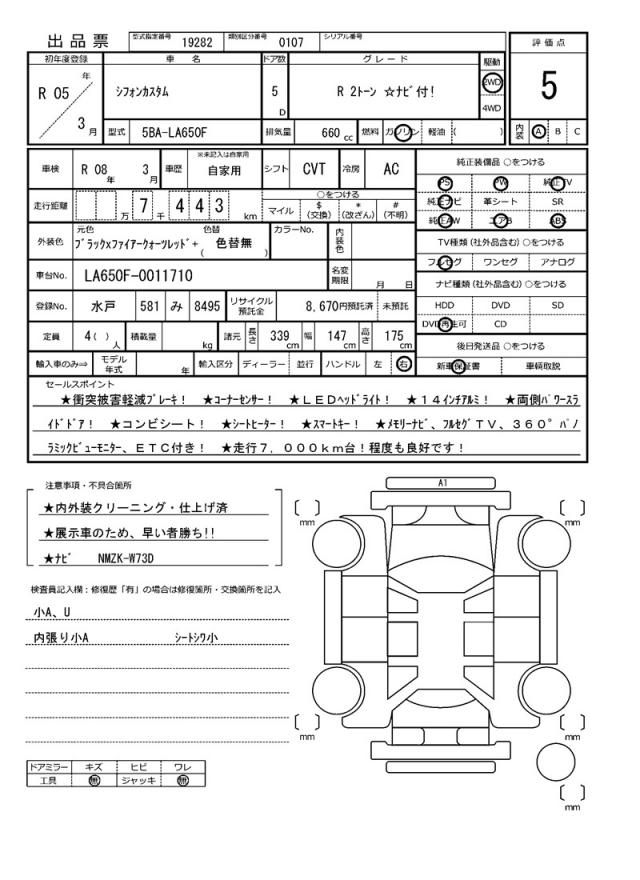 出品票 型式指定番号 19282 類別区分番号 0107 シリアル番号
評価点
5
内装 A B C
初年度登録 車名 ドア数 グレード 駆動
R 05 年 3 月
シフォンカスタム 5 D R 2トーン ☆ナビ付! 2WD 4WD
型式 5BA-LA650F 排気量 660 cc 燃料 ガソリン 軽油 ( )
車検 R 08 年 3 月 車歴 ※未記入は自家用 自家用 シフト CVT 冷房 AC
走行距離 万 7 千 4 4 3 km ○をつける マイル $ (交換) * (改ざん) # (不明)
外装色 元色 ブラックxファイアークォーツレッド+ 色替 ( 色替無 ) カラーNo. 内装色
車台No. LA650F-0011710 名変期限 月 日
登録No. 水戸 581 み 8495 リサイクル預託金 8,670円預託済 未預託
定員 4( ) 人 積載量 kg 諸元 長さ 339 cm 幅 147 cm 高さ 175 cm
輸入車のみ⇒ モデル年式 年 輸入区分 ディーラー 並行 ハンドル 左 右
純正装備品 ○をつける
PS PW 純正TV
純正ナビ 革シート SR
純正AW エアB ABS
TV種類 (社外品含む) ○をつける
フルセグ ワンセグ アナログ
ナビ種類 (社外品含む) ○をつける
HDD DVD SD
DVD再生可 CD
後日発送品 ○をつける
新車保証書 車輌取説
セールスポイント
★衝突被害軽減ブレーキ! ★コーナーセンサー! ★LEDヘッドライト! ★14インチアルミ! ★両側パワースラ
イドドア! ★コンビシート! ★シートヒーター! ★スマートキー! ★メモリーナビ、フルセグTV、360°パノ
ラミックビューモニター、ETC付き! ★走行7,000km台!程度も良好です!
注意事項・不具合箇所
★内外装クリーニング・仕上げ済
★展示車のため、早い者勝ち!!
★ナビ NMZK-W73D
検査員記入欄:修復歴「有」の場合は修復箇所・交換箇所を記入
小A、U
内張り小A シートシワ小
A1
[ ] mm
[ ] mm
[ ] mm
[ ] mm
[ ] mm
ドアミラー キズ ヒビ ワレ
工具 無 ジャッキ 無